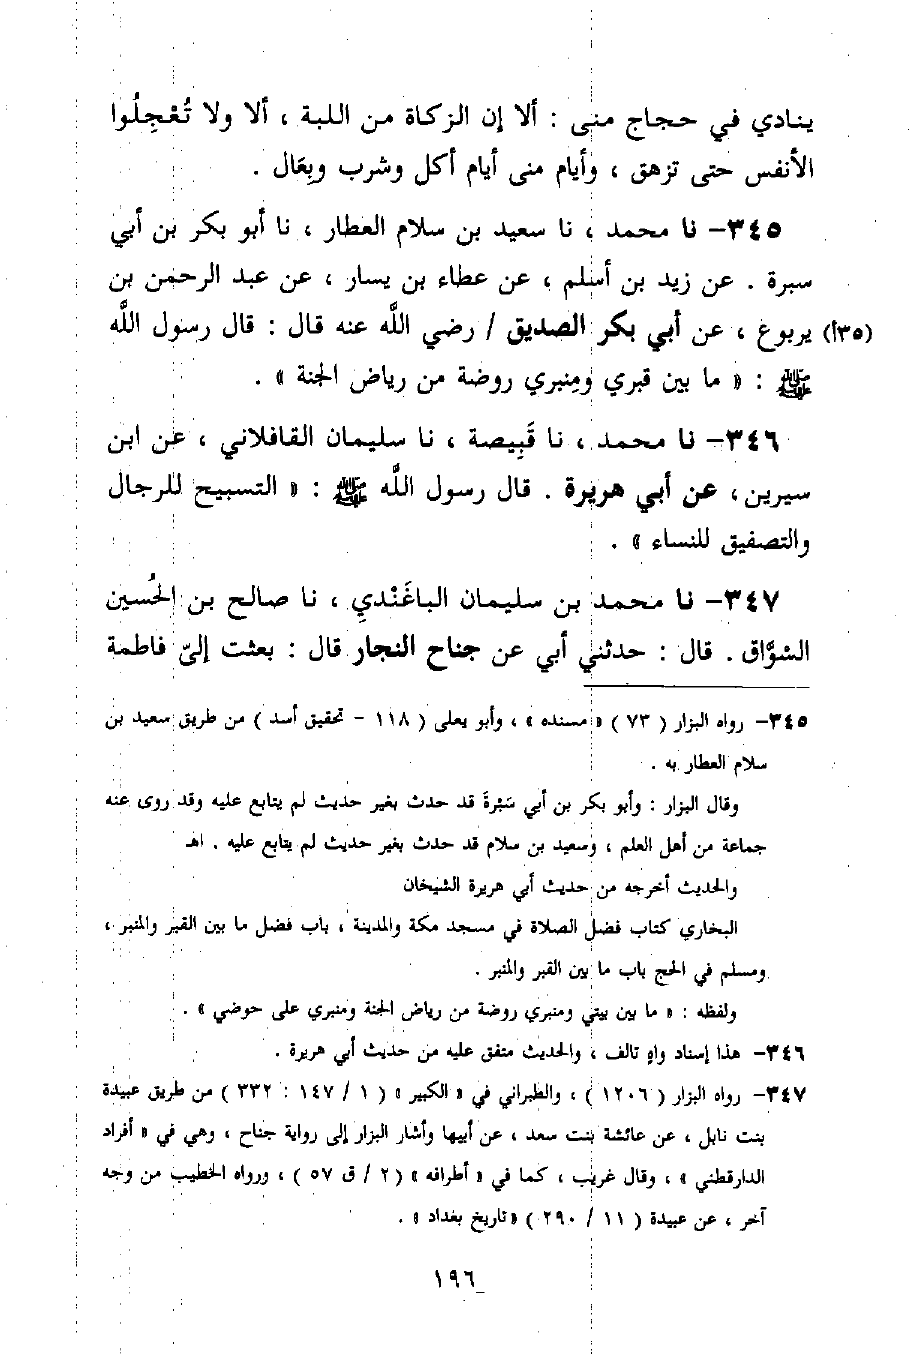 ينادي في حجاج منى : ألا إن الزكاة من اللبة ، ألا ولا تُعْجِلُوا
الأنفس حتى تزهق ، وأيام منى أيام أكل وشرب وبِعَال .
٣٤٥– نا محمد ، نا سعيد بن سلام العطار ، نا أبو بكر بن أبي
سبرة . عن زيد بن أسلم ، عن عطاء بن يسار ، عن عبد الرحمن بن
(٣٥أ) يربوع ، عن أبي بكر الصديق / رضي الله عنه قال : قال رسول الله
ﷺ : « ما بين قبري ومِنبري روضة من رياض الجنة » .
٣٤٦– نا محمد ، نا قَبِيصة ، نا سليمان القافلاني ، عن ابن
سيرين، عن أبي هريرة . قال رسول الله ﷺ : « التسبيح للرجال
والتصفيق للنساء » .
٣٤٧– نا محمد بن سليمان الباغَنْدي ، نا صالح بن الحُسين
السَّوَّاق . قال : حدثني أبي عن جناح النجار قال : بعثت إليّ فاطمة
٣٤٥– رواه البزار ( ٧٣ ) « مسنده » ، وأبو يعلى ( ١١٨ – تحقيق أسد ) من طريق سعيد بن
سلام العطار به .
وقال البزار : وأبو بكر بن أبي سَبْرةَ قد حدث بغير حديث لم يتابع عليه وقد روى عنه
جماعة من أهل العلم ، وسعيد بن سلام قد حدث بغير حديث لم يتابع عليه . اهـ
والحديث أخرجه من حديث أبي هريرة الشيخان
البخاري كتاب فضل الصلاة في مسجد مكة والمدينة ، باب فضل ما بين القبر والمنبر ،
ومسلم في الحج باب ما بين القبر والمنبر .
ولفظه : « ما بين بيتي ومنبري روضة من رياض الجنة ومنبري على حوضي » .
٣٤٦– هذا إسناد واهٍ تالف ، والحديث متفق عليه من حديث أبي هريرة .
٣٤٧– رواه البزار ( ١٢٠٦ ) ، والطبراني في « الكبير » ( ١ / ١٤٧ : ٣٣٢ ) من طريق عبيدة
بنت نابل ، عن عائشة بنت سعد ، عن أبيها وأشار البزار إلى رواية جناح ، وهي في « أفراد
الدارقطني » ، وقال غريب ، كما في « أطرافه » (٢ / ق ٥٧ ) ، ورواه الخطيب من وجه
آخر ، عن عبيدة ( ١١ / ٢٩٠ ) «تاريخ بغداد » .
١٩٦